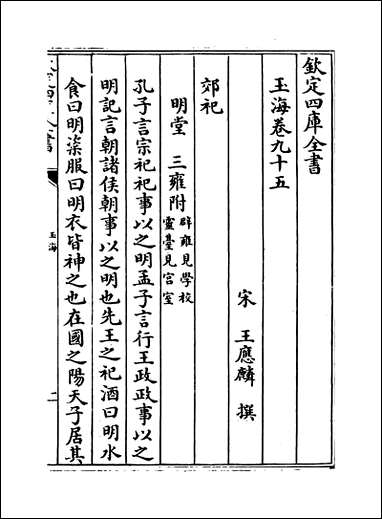 欽定四庫全書
玉海卷九十五
宋 王應麟 撰
郊祀
明堂 三雍附 辟雍見學校
靈臺見宮室
孔子言宗祀祀事以之明孟子言行王政政事以之
明記言朝諸侯朝事以之明也先王之祀酒曰明水
食曰明粢服曰明衣皆神之也在國之陽天子居其
玉海
二